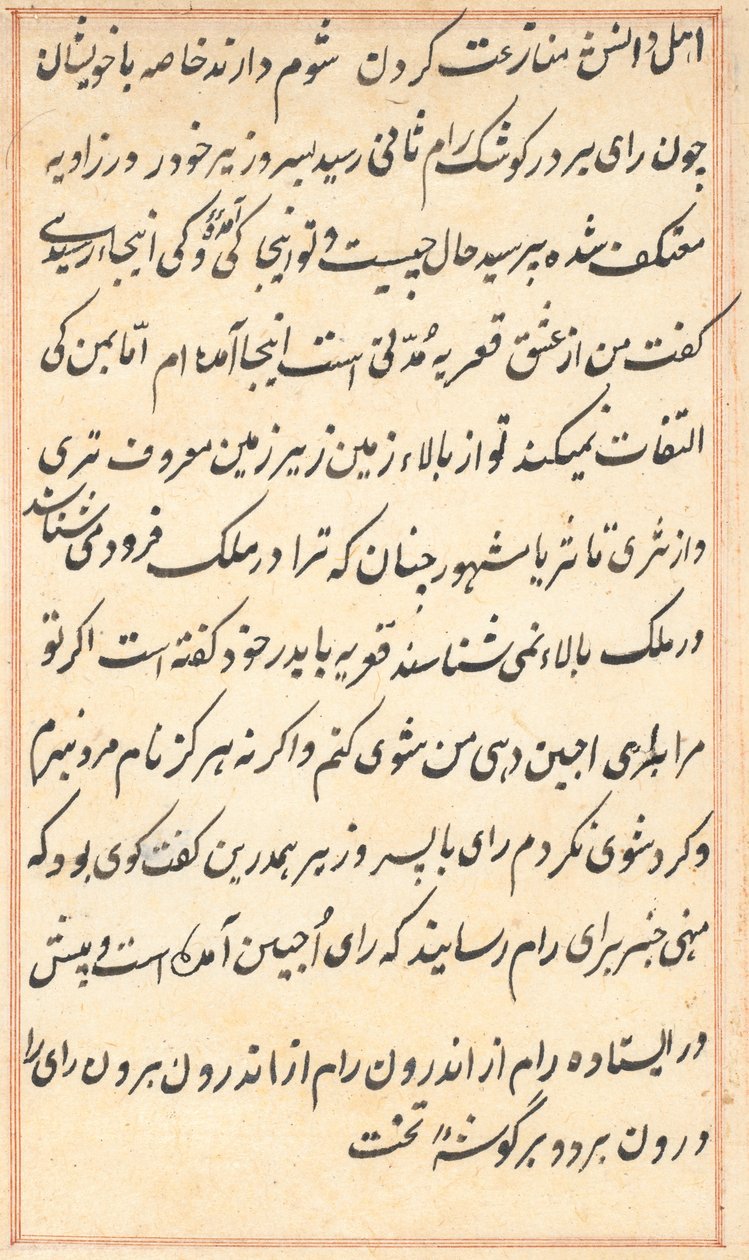 اهل دانش منازعت کردن شوم دارند خاصه با خویشان
چون رای بر در کوشک رام ثانی رسید پسر وزیر خود در زاویه
معتکف شده پرسید حال چیست و تو اینجا کی آمدهٔ و کی اینجا رسیدی
کفت من از عشق قعریه مُدّتی است اینجا آمده ام امّا بمن کی
التفات نمیکند تو از بالاء زمین زیر زمین معروف تری
و از ثری تا ثریا مشهور چنان که ترا در ملک فرود می شناسند
در ملک بالاء نمی شناسند قعریه با پدر خود کفته است اکر تو
مرا برای اجین دهی من شوی کنم و اکر نه هرکز نام مرد نبرم
و کرد شوی نکردم رای با پسر وزیر همدرین کفت کوی بود که
منهی خبر برای رام رسانید که رای اُجین آمده است و پیش
در ایستاده رام از اندرون رام از اندرون برون رای را
درون برد و بر گوشهٔ تخت